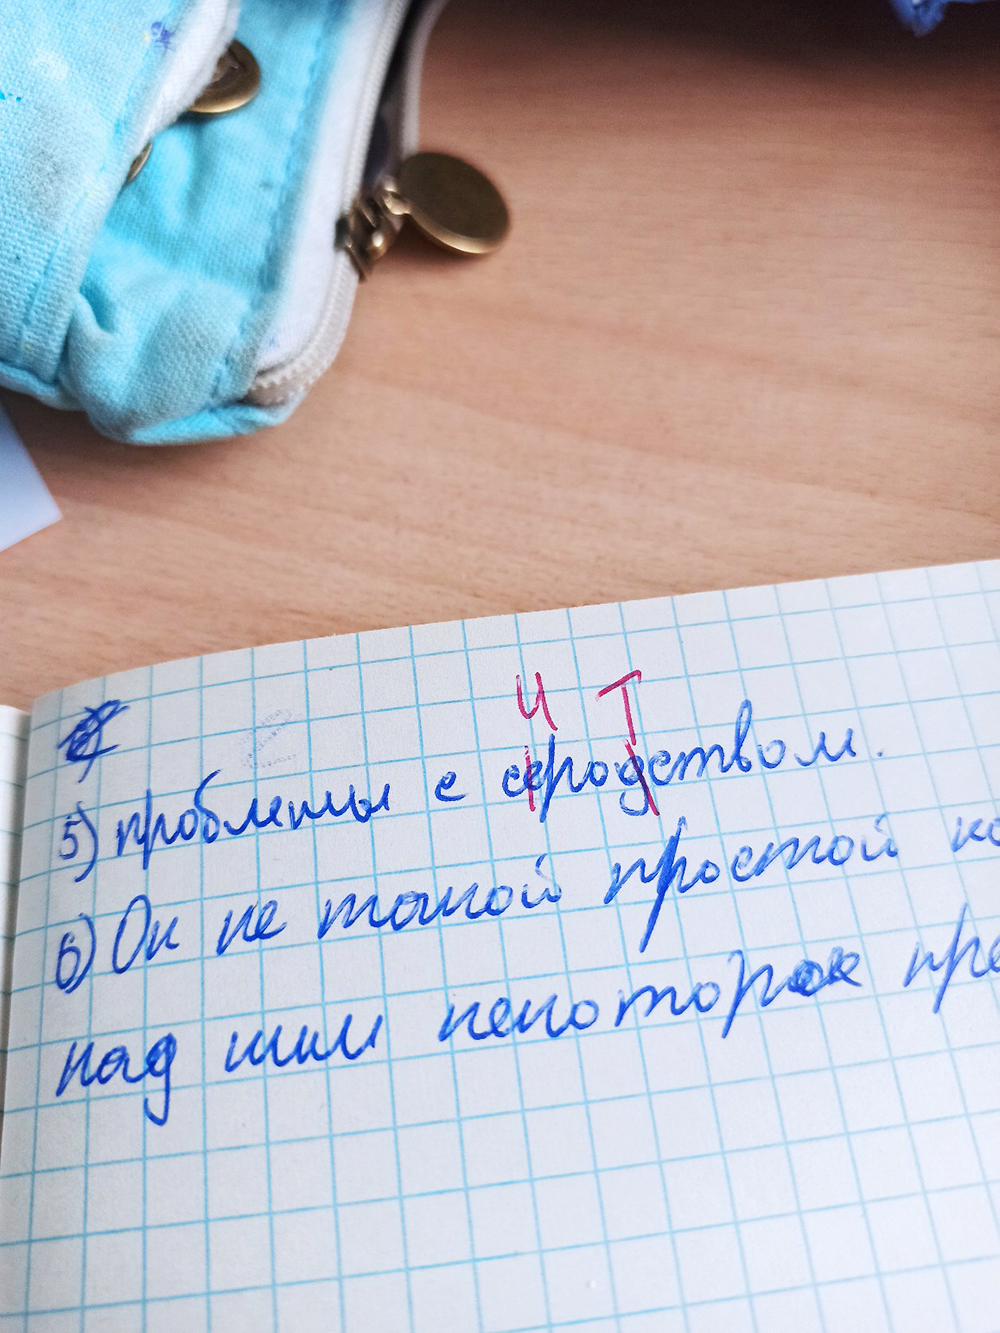 И Т
5) проблемы с серодством.
6) Он не такой простой
над ним некоторое пре